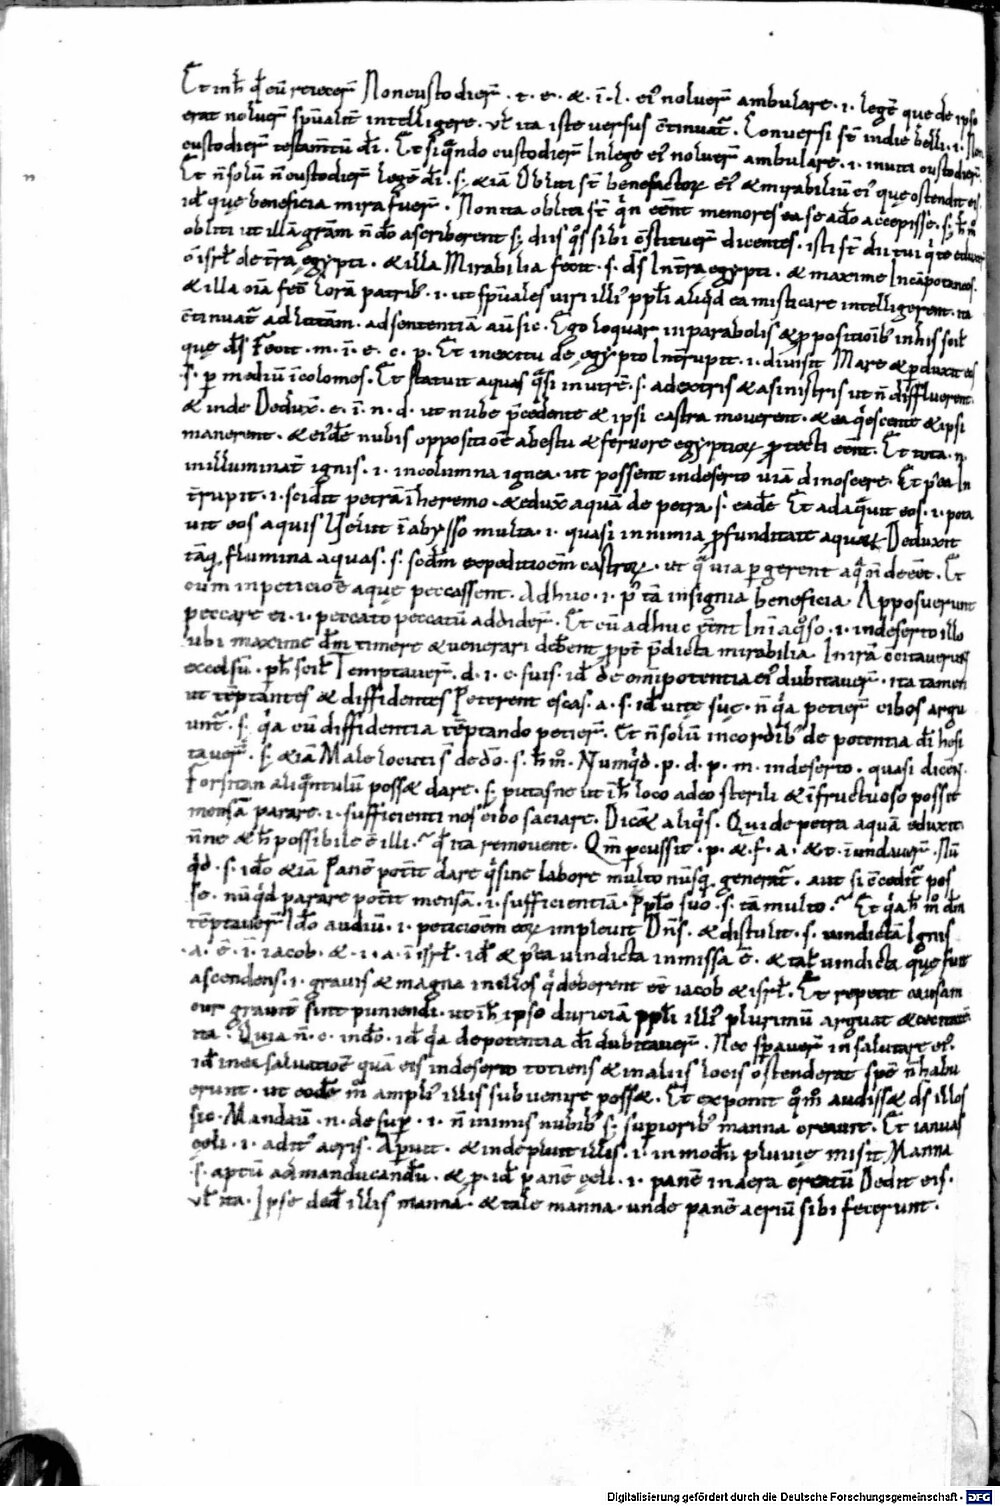 Et in h̄ qđ eū reiecer̄ Non custodier̄ . t . e . & . ī . l . ei' noluer̄ ambulare . i . legē que de ipso
erat noluer̄ sp̄ualit̄ intelligere . vł ita iste versus c̄tinuat̄ . Conversi s̄t in die belli . i . Non
custodier̄ testam̄tū dī . Et siq̄ndo custodier̄ In lege ei' noluer̄ ambulare . i . inviti custodier̄
Et n̄ solū n̄ custodier̄ legē dī . s; & iā Obliti s̄t benefactor̄ ei' & mirabiliū ei' que ostendit eis
id̄ quę beneficia mira fuer̄ . Non ita obliti s̄t q̇n eēnt memores ea se a dō accepisse . s; h̄ m̊
obliti ut illā grām n̄ dō ascriberent s; diis q̄s sibi c̄stituer̄ dicentes . isti s̄t dii tui q̇ te eduxer̄
ō isrł de t̄ra ęgypti . & illa Mirabilia fecit . s . dś In t̄ra ęgypti . & maxime In cāpo taneos .
& illa oīa fec̄ corā patrib' . i . ut sp̄uales viri illi' ppłi aliq̇d ea misticare intelligerent . ita
c̄tinuat̄ ad litt̄am . ad sententiā aū sic . Ego loquar in parabolis & p̱positioīb' in his scił
quę dś Fecit . m . ī . e . c . p . Et in exitu de ęgypto Int̄rupit . i . divisit Mare & p̱duxit eos
s . p̱ mediū īcolomes . Et statuit aquas q̄si in utrē . s . a dextris & a sinistris ut n̄ diffluerent .
& inde Dedux̄ . e . ī . n . d . ut nube p̄cedente & ipsi castra moverent . & ea q̇escente & ipsi
manerent . & ei'dē nubis oppositiōe ab estu & fervore egyptior̄ p̱tecti eēnt . Et tota . n .
in illuminat̄ ignis . i . in columna ignea . ut possent in deserto viā dinoscere . Et p'ea In
t̄rupit . i . scidit petrā ī heremo . & edux̄ aquā de petra . s . eadē Et adaq̄vit eos . i . pota
vit eos aquis Velut ī abysso multa . i . quasi in nimia p̱funditate aquar̄ Deduxit
tāq; flumina aquas . s . scdm̄ expeditioēm castror̄ . ut q̄ via p̱gerent aq̄ n̄ deēēt . Et
cum in peticiōe aquę peccassent . Adhuc . i . p' tā insignia beneficia . Apposuerunt
peccare ei . i . peccato peccatū addider̄ . Et cū adhuc eēnt In īaq̊so . i . in deserto illo
ubi maxime dm̄ timere & venerari debent p̱pt̄ p̄dicta mirabilia . In irā c̄citaverunt
excelsū . p̄h scił Temptaver̄ . d . i . c . suis . id̄ de omīpotentia ei' dubitaver̄ . ita tamen
ut tēptantes & diffidentes Peterent escas . a . s . id̄ vitę suę . n̄ q̇a petier̄ cibos argu
unt̄ . s; q̇a cū diffidentia tēptando petier̄ . Et n̄ solū in cordib' de potentia dī hesi
taver̄ . s; & iā Male locuti s̄ de dō . s . h̄ m̊ . Numq̇d . p . d . p . m . in deserto . quasi dicēs .
Forsitan aliq̄ntulū poss& dare . s; putasne ut ī h̄ loco adeo sterili & īfructuoso possit
mensā parare . i . sufficienti nos cibo saciare . Dic& aliq̇s . Qui de petra aquā eduxit
n̄ne & h̄ possibile ē illi . qđ ita removent . Qm̄ p̱cussit . p . & . f . a . & t . īundaver̄ . Nū
q̇d . s . idō & iā Panē pot̄it dare q̇ sine labore multo nūsq; generat̄ . aut si c̄cedit̄ pos
se . nūq̇d parare pot̄it mensā . i . sufficientiā . Ppło suo . s . tā multo . Et q̇a h̄ m̊ dm̄
tēptaver̄ Idō audiū . i . peticioēm eor̄ implevit Dn̄s . & distulit . s . vindictā Ignis
. a . ē . ī . iacob . & . i . a . ī isrł . id̄ & p'ea vindicta inmissa ē . & tał vindicta quę fuit
ascendens . i . gravis & magna in illos q̇ deberent eē iacob & isrł . Et repetit causam
cur gravit̄ sint puniendi . ut ī h̄ ipso duriciā ppłi illi' plurimū arguat
ita . Quia n̄ . c . in dō . id̄ q̇a de potentia dī dubitaver̄ . Nec sp̱aver̄ in salutare ei' .
id̄ in ea salvatiōe quā eis in deserto totiens & in aliis locis ostenderat spē n̄ habu
erunt . ut eodē m̊ ampli' illis subvenire poss& . Et exponit q̊m̊ audiss& dś illos
sic . Mandavī . n . de sup̱ . i . n̄ inimis nubib' s; sup̱iorib' manna creavit . Et ianuas
cęli . i . adit' aeris . Ap̱uit . & inde pluit illis . i . in modū pluvię misit Manna
. s . aptū ad manducandū . & p . id̄ panē cęli . i . panē in aera creatū Dedit eis .
vł ita . Ipse ded̄ illis manna . & tale manna . unde panē aeriū sibi fecerunt .
Digitalisierung gefördert durch die Deutsche Forschungsgemeinschaft - DFG